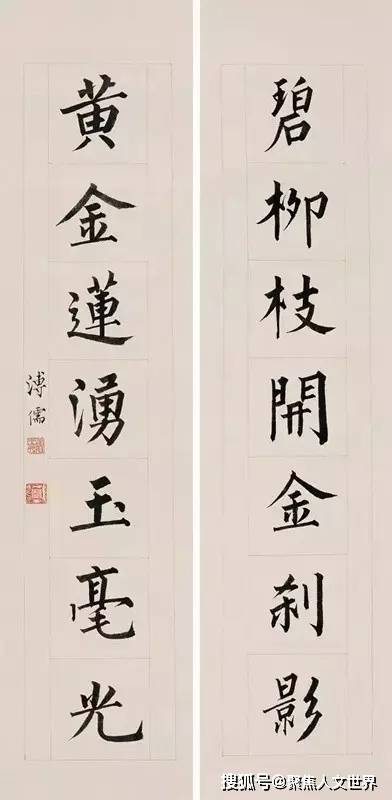 碧柳枝開金刹影
黃金蓮湧玉毫光
溥儒
搜狐号@聚焦人文世界